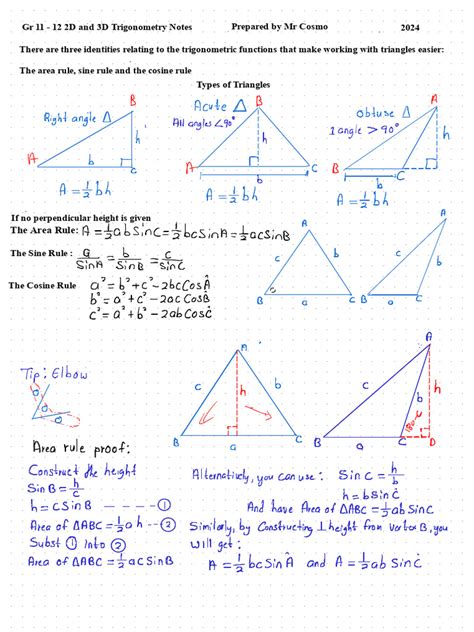 Gr 11 - 12 2D and 3D Trigonometry Notes Prepared by Mr Cosmo 2024
There are three identities relating to the trigonometric functions that make working with triangles easier:
The area rule, sine rule and the cosine rule
Types of Triangles
Right angle Δ
B
h
A
b
C
A = ½bh
Acute Δ
All angles <90°
B
h
A
C
b
A = ½bh
Obtuse Δ
1 angle > 90°
A
h
B
C
b
A = ½bh
If no perpendicular height is given
The Area Rule: A = ½abSinC = ½bcSinA = ½acSinB
The Sine Rule : a/SinA = b/SinB = c/SinC
The Cosine Rule a² = b² + c² - 2bcCosÂ
b² = a² + c² - 2acCosB̂
c² = a² + b² - 2abCosĈ
A
c
b
B
a
C
A
c
b
B
a
C
Tip: Elbow
A
c
h
b
B
a
C
A
c
b
h
B
a
C
180-C
D
Area rule proof:
Construct the height
SinB = h/c
h = cSinB ---- ①
Area of ΔABC = ½ah -- ②
Subst ① into ②
Area of ΔABC = ½acSinB
Alternatively, you can use: SinC = h/b
h = bSinĈ
And have Area of ΔABC = ½abSinC
Similarly, by Constructing ⊥height from vertex B, you
will get:
A = ½bcSinÂ and A = ½abSinĈ